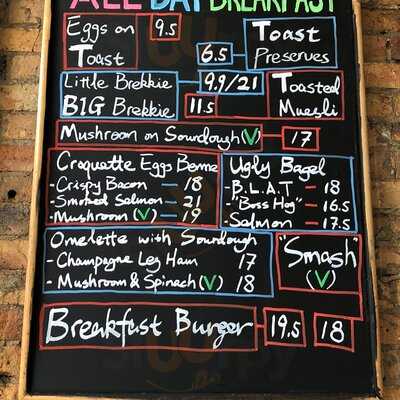 ALL DAY BREAKFAST
Eggs on Toast 9.5
Toast Preserves 6.5
Little Brekkie 9.9/21
BIG Brekkie 11.5
Toasted Muesli
Mushroom on Sourdough (V) - 17
Croquette Eggs Benne
- Crispy Bacon - 18
- Smoked Salmon - 21
- Mushroom (V) - 19
Ugly Bagel
- B.L.A.T - 18
- "Boss Hog" - 16.5
- Salmon - 17.5
Omelette with Sourdough
- Champagne Leg Ham 17
- Mushroom & Spinach (V) 18
"Smash"
(V)
Breakfast Burger - 19.5 18